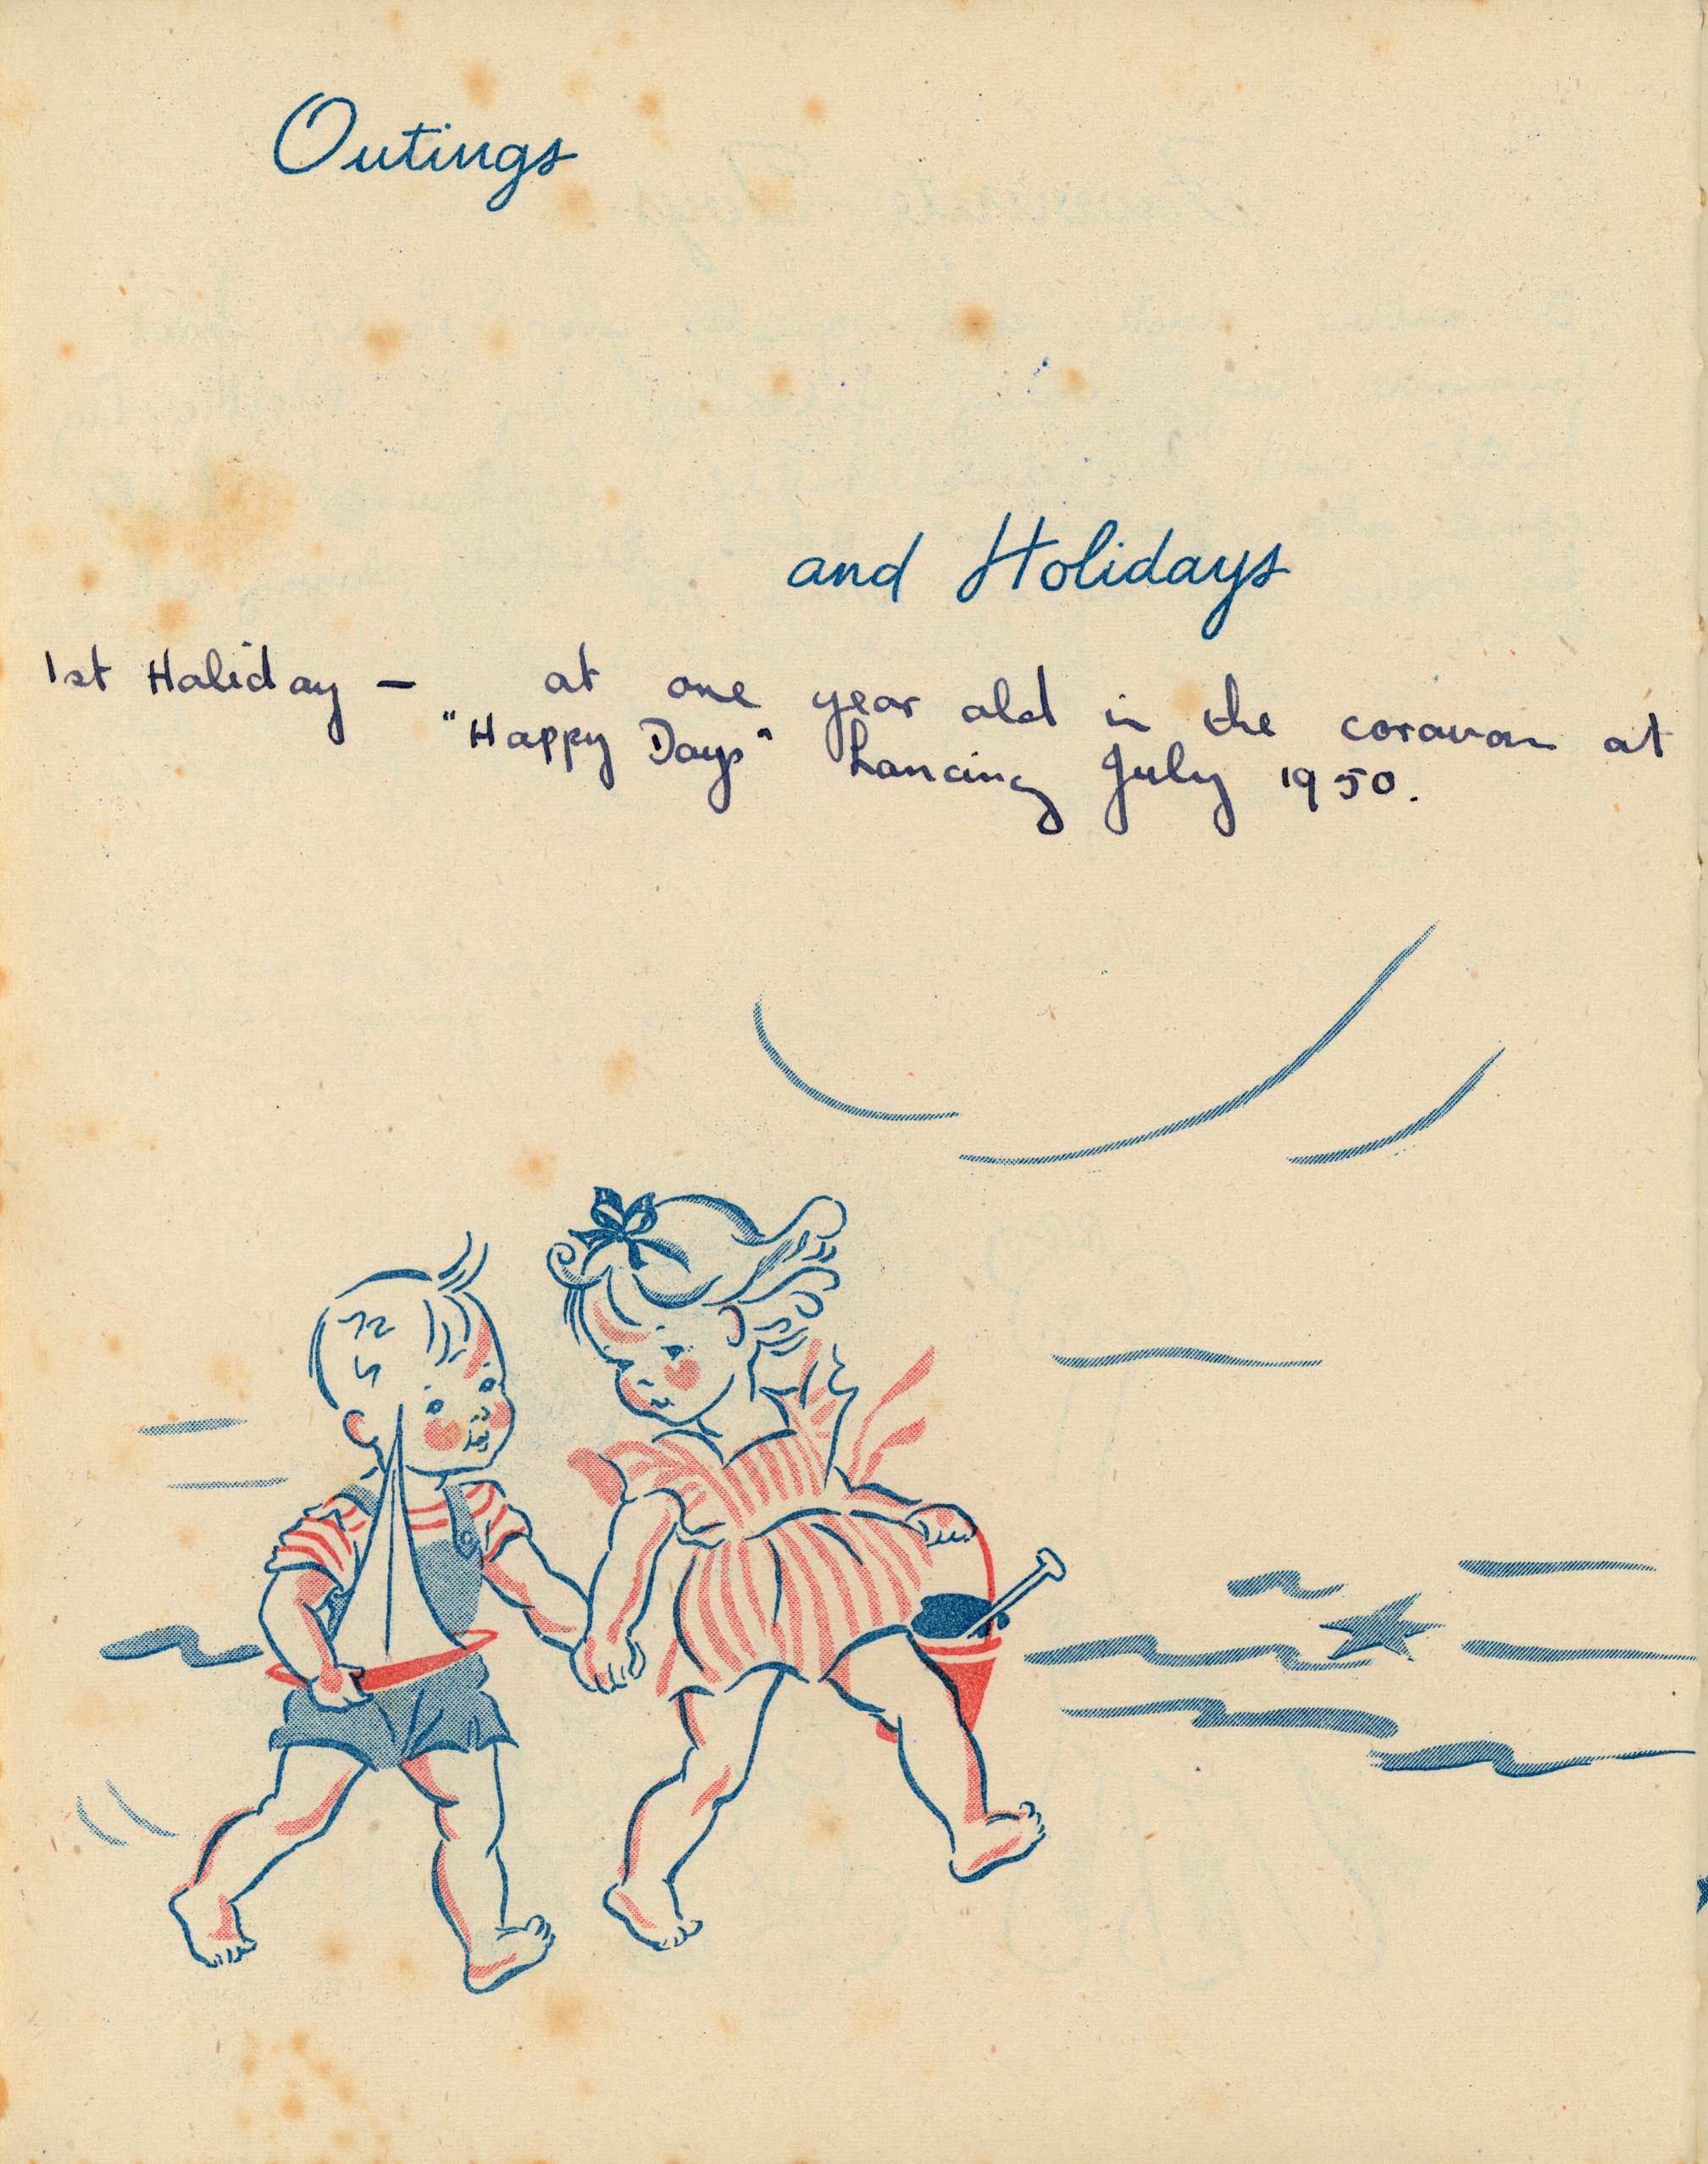 Outings
and Holidays
1st Holiday — at one year old in the caravan at
"Happy Days" Lancing July 1950.